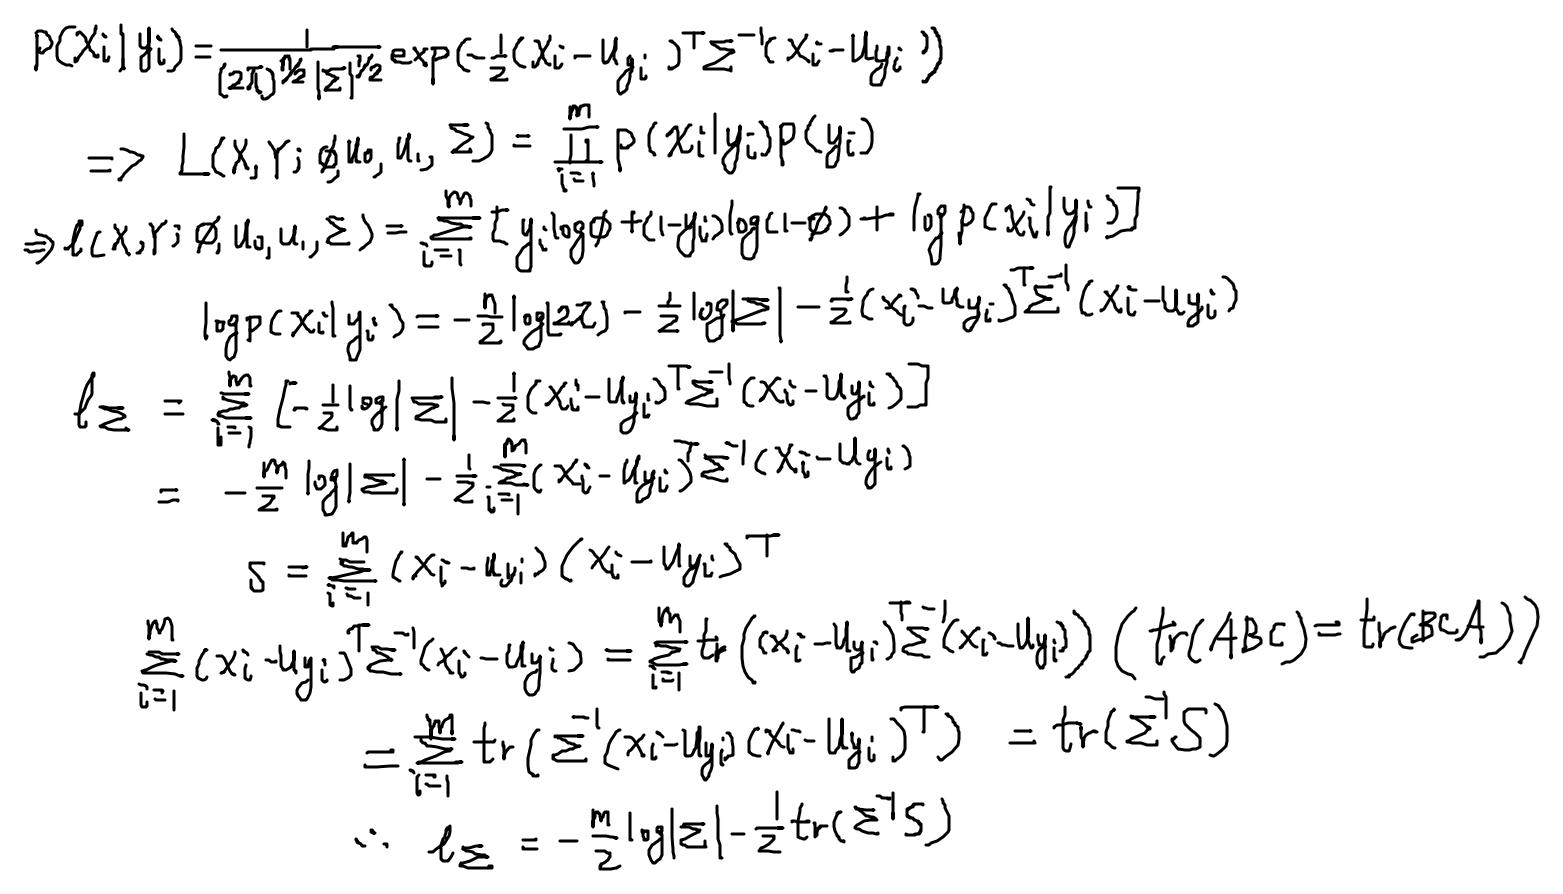 P(Xi|yi) = 1/((2π)^(n/2) |Σ|^(1/2)) exp(-1/2 (Xi - Uyi)^T Σ^-1 (Xi - Uyi))
=> L(X, Y; ϕ, U0, U1, Σ) = ∏_{i=1}^{m} P(Xi|yi)P(yi)
⇒ ℓ(X, Y; ϕ, U0, U1, Σ) = Σ_{i=1}^{m} [yi logϕ + (1-yi)log(1-ϕ) + log P(xi|yi)]
log P(Xi|yi) = -n/2 log(2π) - 1/2 log|Σ| - 1/2 (xi - Uyi)^T Σ^-1 (Xi - Uyi)
ℓ_Σ = Σ_{i=1}^{m} [-1/2 log|Σ| - 1/2 (Xi - Uyi)^T Σ^-1 (Xi - Uyi)]
= -m/2 log|Σ| - 1/2 Σ_{i=1}^{m} (Xi - Uyi)^T Σ^-1 (Xi - Uyi)
S = Σ_{i=1}^{m} (Xi - Uyi)(Xi - Uyi)^T
Σ_{i=1}^{m} (Xi - Uyi)^T Σ^-1 (Xi - Uyi) = Σ_{i=1}^{m} tr((Xi - Uyi)^T Σ^-1 (Xi - Uyi)) (tr(ABC) = tr(BCA))
= Σ_{i=1}^{m} tr(Σ^-1 (Xi - Uyi)(Xi - Uyi)^T) = tr(Σ^-1 S)
∴ ℓ_Σ = -m/2 log|Σ| - 1/2 tr(Σ^-1 S)